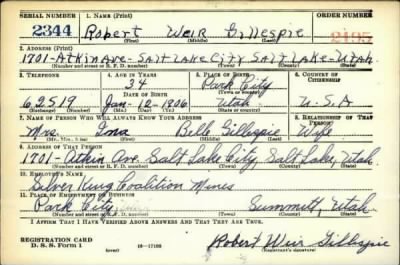 SERIAL NUMBER 1. NAME (Print) ORDER NUMBER
2344 Robert Weir Gillespie 2195
(First) (Middle) (Last)
2. ADDRESS (Print)
1701-Atkin Ave-Salt Lake City Salt Lake-Utah.
(Number and street or R. F. D. number) (Town) (County) (State)
3. TELEPHONE 4. AGE IN YEARS 5. PLACE OF BIRTH 6. COUNTRY OF CITIZENSHIP
34 Park City
DATE OF BIRTH (Town or county)
62519 Jan-12-1906 Utah U.S.A
(Exchange) (Number) (Mo.) (Day) (Yr.) (State or country)
7. NAME OF PERSON WHO WILL ALWAYS KNOW YOUR ADDRESS 8. RELATIONSHIP OF THAT PERSON
Mrs. Ina Belle Gillespie Wife
(Mr., Mrs., Miss) (First) (Middle) (Last)
9. ADDRESS OF THAT PERSON
1701-Atkin Ave. Salt Lake City, Salt Lake, Utah
(Number and street or R. F. D. number) (Town) (County) (State)
10. EMPLOYER'S NAME
Silver King Coalition Mines
11. PLACE OF EMPLOYMENT OR BUSINESS
Park City Summitt, Utah.
(Number and street or R. F. D. number) (Town) (County) (State)
I AFFIRM THAT I HAVE VERIFIED ABOVE ANSWERS AND THAT THEY ARE TRUE.
REGISTRATION CARD
D. S. S. Form 1 (over) 16-17105 Robert Weir Gillespie
(Registrant's signature)